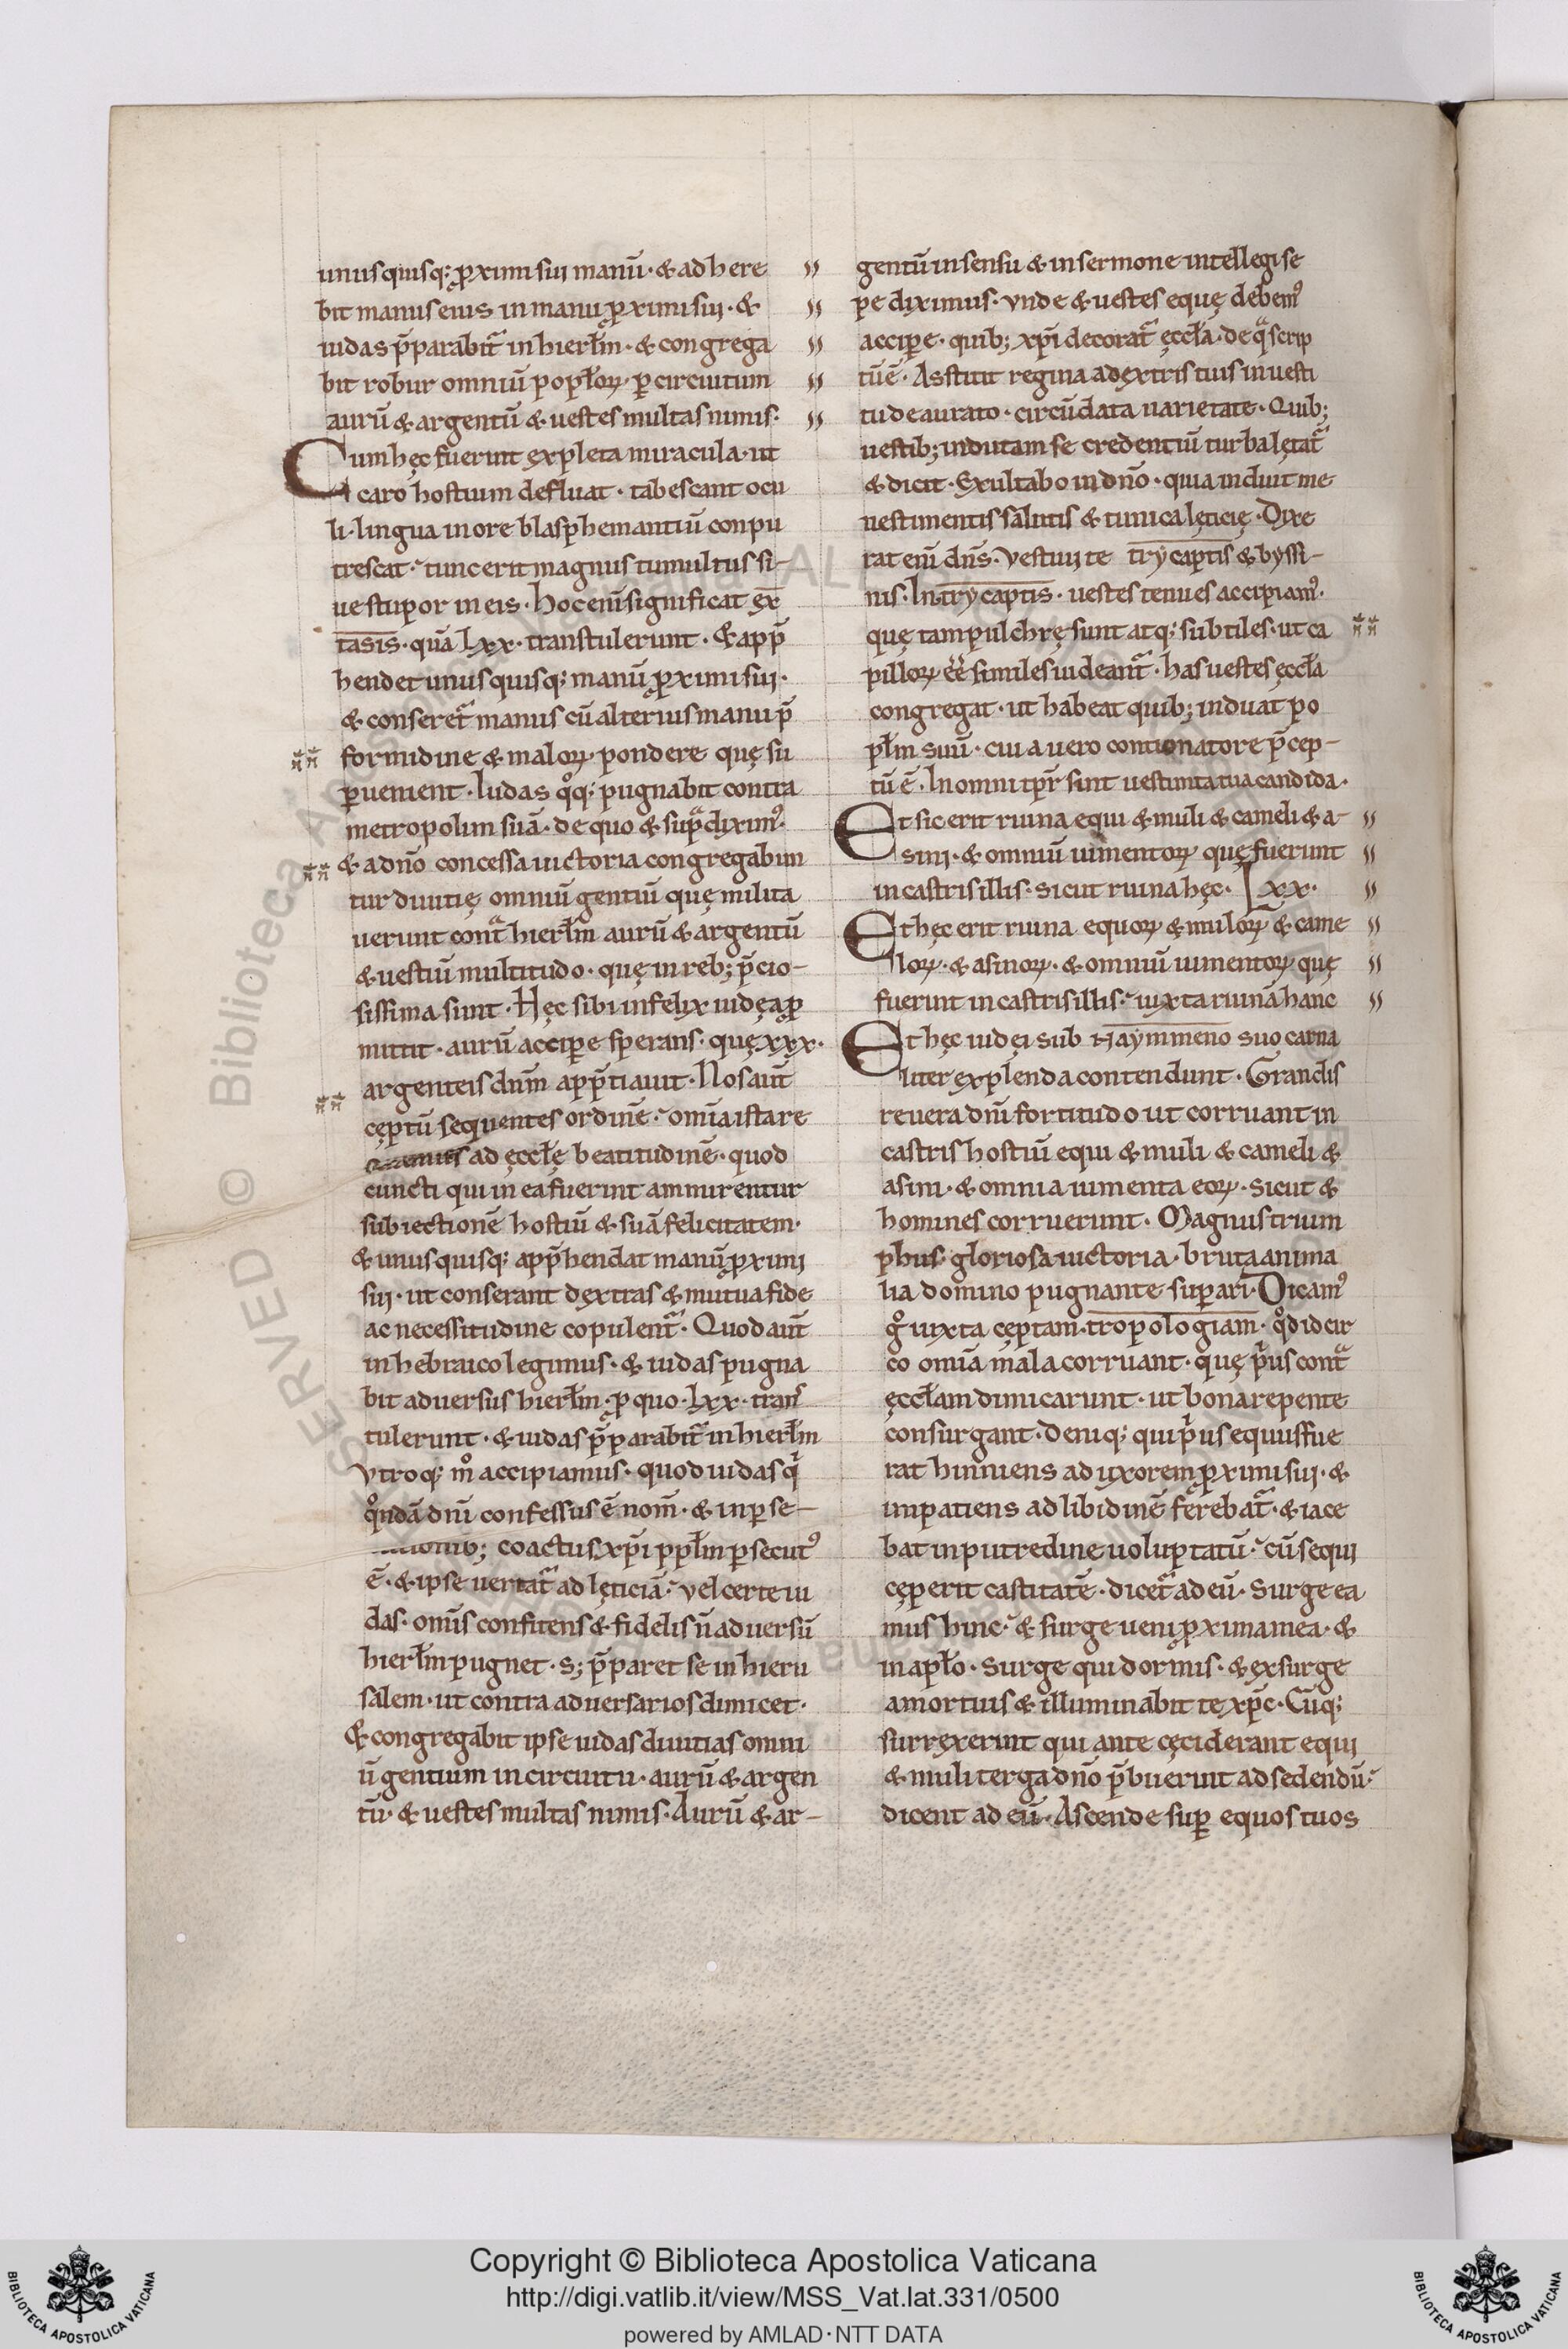 unusquisq; ꝓximi sui manū· & adhere
bit manus eius in manu ꝓximi sui· &
iudas p̄parabit᷑ in hierl̄m· & congrega
bit robur omniū popl̄oꝝ· ꝑ circuitum
aurū & argentū & uestes multas nimis·
Cum hęc fuerint expleta miracula· ut
caro hostium defluat· tabescant ocu
li· lingua in ore blasphemantiū conpu
trescat· tunc erit magnus tumultus si-
ue stupor in eis· hoc eni̅ significat ex̅
ta̅s̅i̅s̅· quā lxx· transtulerunt· & app̄
hendet unusquisq; manū ꝓximi sui·
& conseret᷑ manus cū alterius manu p̄
formidine & maloꝝ pondere quę su
ꝑuenient· Iudas qͦq; pugnabit contra
metropolim suā· de quo & supͣ diximꝰ·
& a dn̄o concessa uictoria congregabun
tur diuitię omniū gentiū quę milita
uerunt contͣ hierl̄m aurū & argentū
& uestiū multitudo· quę in reb; p̄cio-
sissima sunt· Hęc sibi infelix iudęa ꝓ
mittit· aurū acciꝑe sperans· quę xxx·
argenteis dn̄m app̄tiauit· Nos aūt
cęptū sequentes ordinē· omīa ista re
ad ęccl̄ę beatitudinē· quod
cuncti qui in ea fuerint ammirentur
subiectionē hostiū & suā felicitatem·
& unusquisq; app̄hendat manū ꝓximi
sui· ut conserant dextras & mutua fide
ac necessitudine copulent᷑· Quod aūt
in hebraico legimus· & iudas pugna
bit aduersus hierl̄m· ꝓ quo· lxx· trans̄
tulerunt· & iudas p̄parabit᷑ in hierl̄m
Vtroq; mͦ accipiamus· quod iudas qͥ
qͦndā dn̄i confessus ē nom̄· & in ꝑse-
coactus xp̄i ppl̄m ꝑsecutꝰ
ē· & ipse uertat᷑ ad lęticiā· vel certe iu
das· omīs confitens & fidelis n̄ aduersū
hierl̄m pugnet· s; p̄paret se in hieru
salem· ut contra aduersarios dimicet·
& congregabit ipse iudas diuitias omni
ū gentium in circuitu· aurū & argen
tū· & uestes multas nimis· Aurū & ar-
gentū in sensu & in sermone intellegi sę
pe diximus· vnde & uestes eque debemꝰ
acciꝑe· quib; xp̄i decorat᷑ ęccl̄a· de qͣ scrip
tū ē· Astitit regina a dextris tuis in uesti
tu deaurato· circūdata uarietate· Quib;
uestib; indutam se credentiū turba lętat᷑
& dicit· Exultabo in dn̄o· quia induit me
uestimentis salutis & tunica lęticię· Dixe
rat eni̅ dn̄s· Vestiui te trycaptis & byssi-
nis· In trycaptis· uestes tenues accipiamꝰ·
quę tam pulchrę sunt atq; subtiles· ut ca
pilloꝝ ēē similes uideant᷑· has uestes ęccl̄a
congregat· ut habeat quib; induat po
pl̄m suū· cui a uero contionatore p̄cep-
tū ē· In omni tp̄r sint uestimta tua candida·
Et sic erit ruina equi & muli & cameli & a-
sini· & omniū iumentoꝝ quę fuerunt
in castris illis· sicut ruina hęc· Lxx·
Et hęc erit ruina equoꝝ & muloꝝ & came
loꝝ· & asinoꝝ· & omniū iumentoꝝ quę
fuerint in castris illis· iuxta ruinā hanc
Et hęc iudęi sub haymmeno suo carna
liter explenda contendunt· Grandis
reuera dn̄i fortitudo ut corruant in
castris hostiū equi & muli & cameli &
asini· & omnia iumenta eoꝝ· sicut &
homines corruerunt· Magnus trium
phus· gloriosa uictoria· bruta anima
lia domino pugnante suꝑari· Dicamꝰ
gͦ iuxta cęptam tropologiam· qͦd idcir
co omīa mala corruant· quę pͥus contͣ
ęccl̄am dimicarunt· ut bona repente
consurgant· Deniq; qui pͥus equus fue
rat hinniens ad uxorem ꝓximi sui· &
inpatiens ad libidinē ferebat᷑· & iace
bat in putredine uoluptatū· cū sequi
cęperit castitatē· dicet᷑ ad eū· Surge ea
mus hinc· & surge ueni ꝓxima mea· &
in apl̄o· Surge qui dormis· & exsurge
a mortuis & illuminabit te xp̄c· Cūq;
surrexerint qui ante cęciderant equi
& muli terga dn̄o p̄buerint ad sedendū·
dicent ad eū· Ascende suꝑ equos tuos
Copyright © Biblioteca Apostolica Vaticana
http://digi.vatlib.it/view/MSS_Vat.lat.331/0500
powered by AMLAD·NTT DATA
BIBLIOTECA APOSTOLICA VATICANA
BIBLIOTECA APOSTOLICA VATICANA